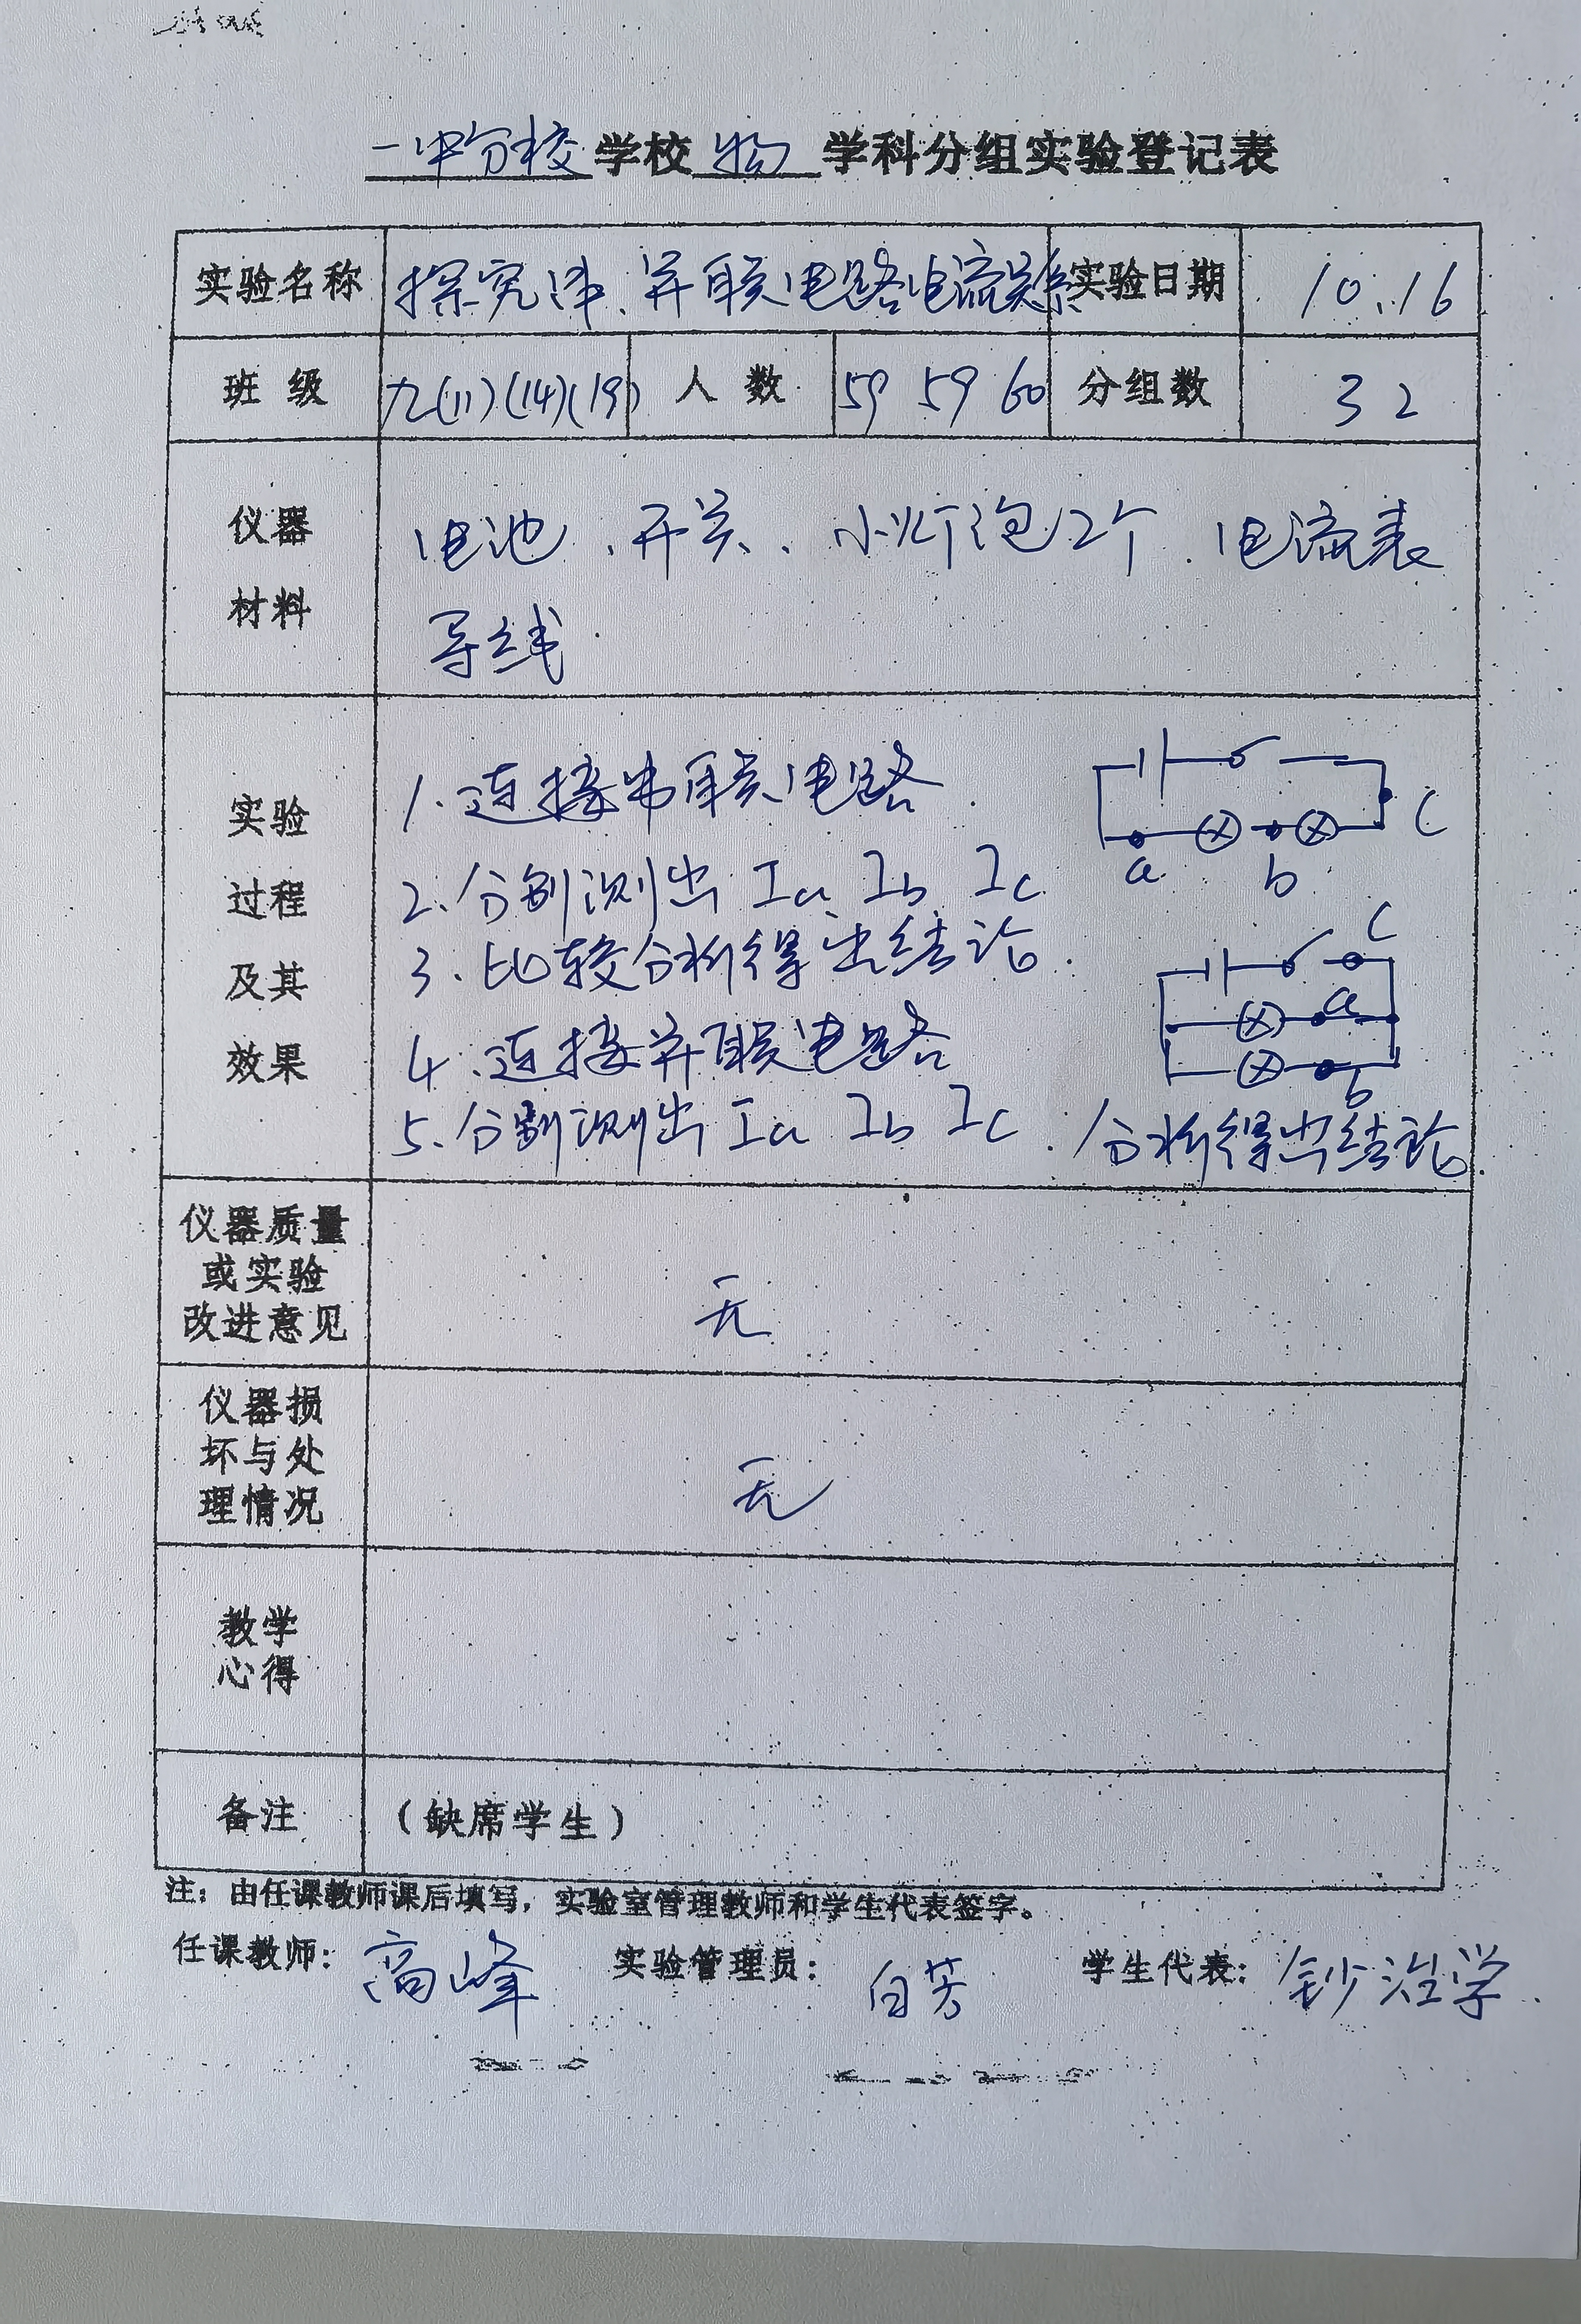 一中分校学校 物 学科分组实验登记表
实验名称 探究串、并联电路电流关系 实验日期 10.16
班级 九(11)(14)(19) 人数 59 59 60 分组数 32
仪器材料
电池、开关、小灯泡2个、电流表
导线
实验过程及其效果
1.连接串联电路.
2.分别测出 Ia Ib Ic
3.比较分析得出结论.
4.连接并联电路
5.分别测出 Ia Ib Ic. 分析得出结论.
a b c
c
a
b
仪器质量
或实验
改进意见
无
仪器损
坏与处
理情况
无
教学
心得
备注 (缺席学生)
注:由任课教师课后填写,实验室管理教师和学生代表签字。
任课教师: 高峰 实验管理员: 白芳 学生代表: